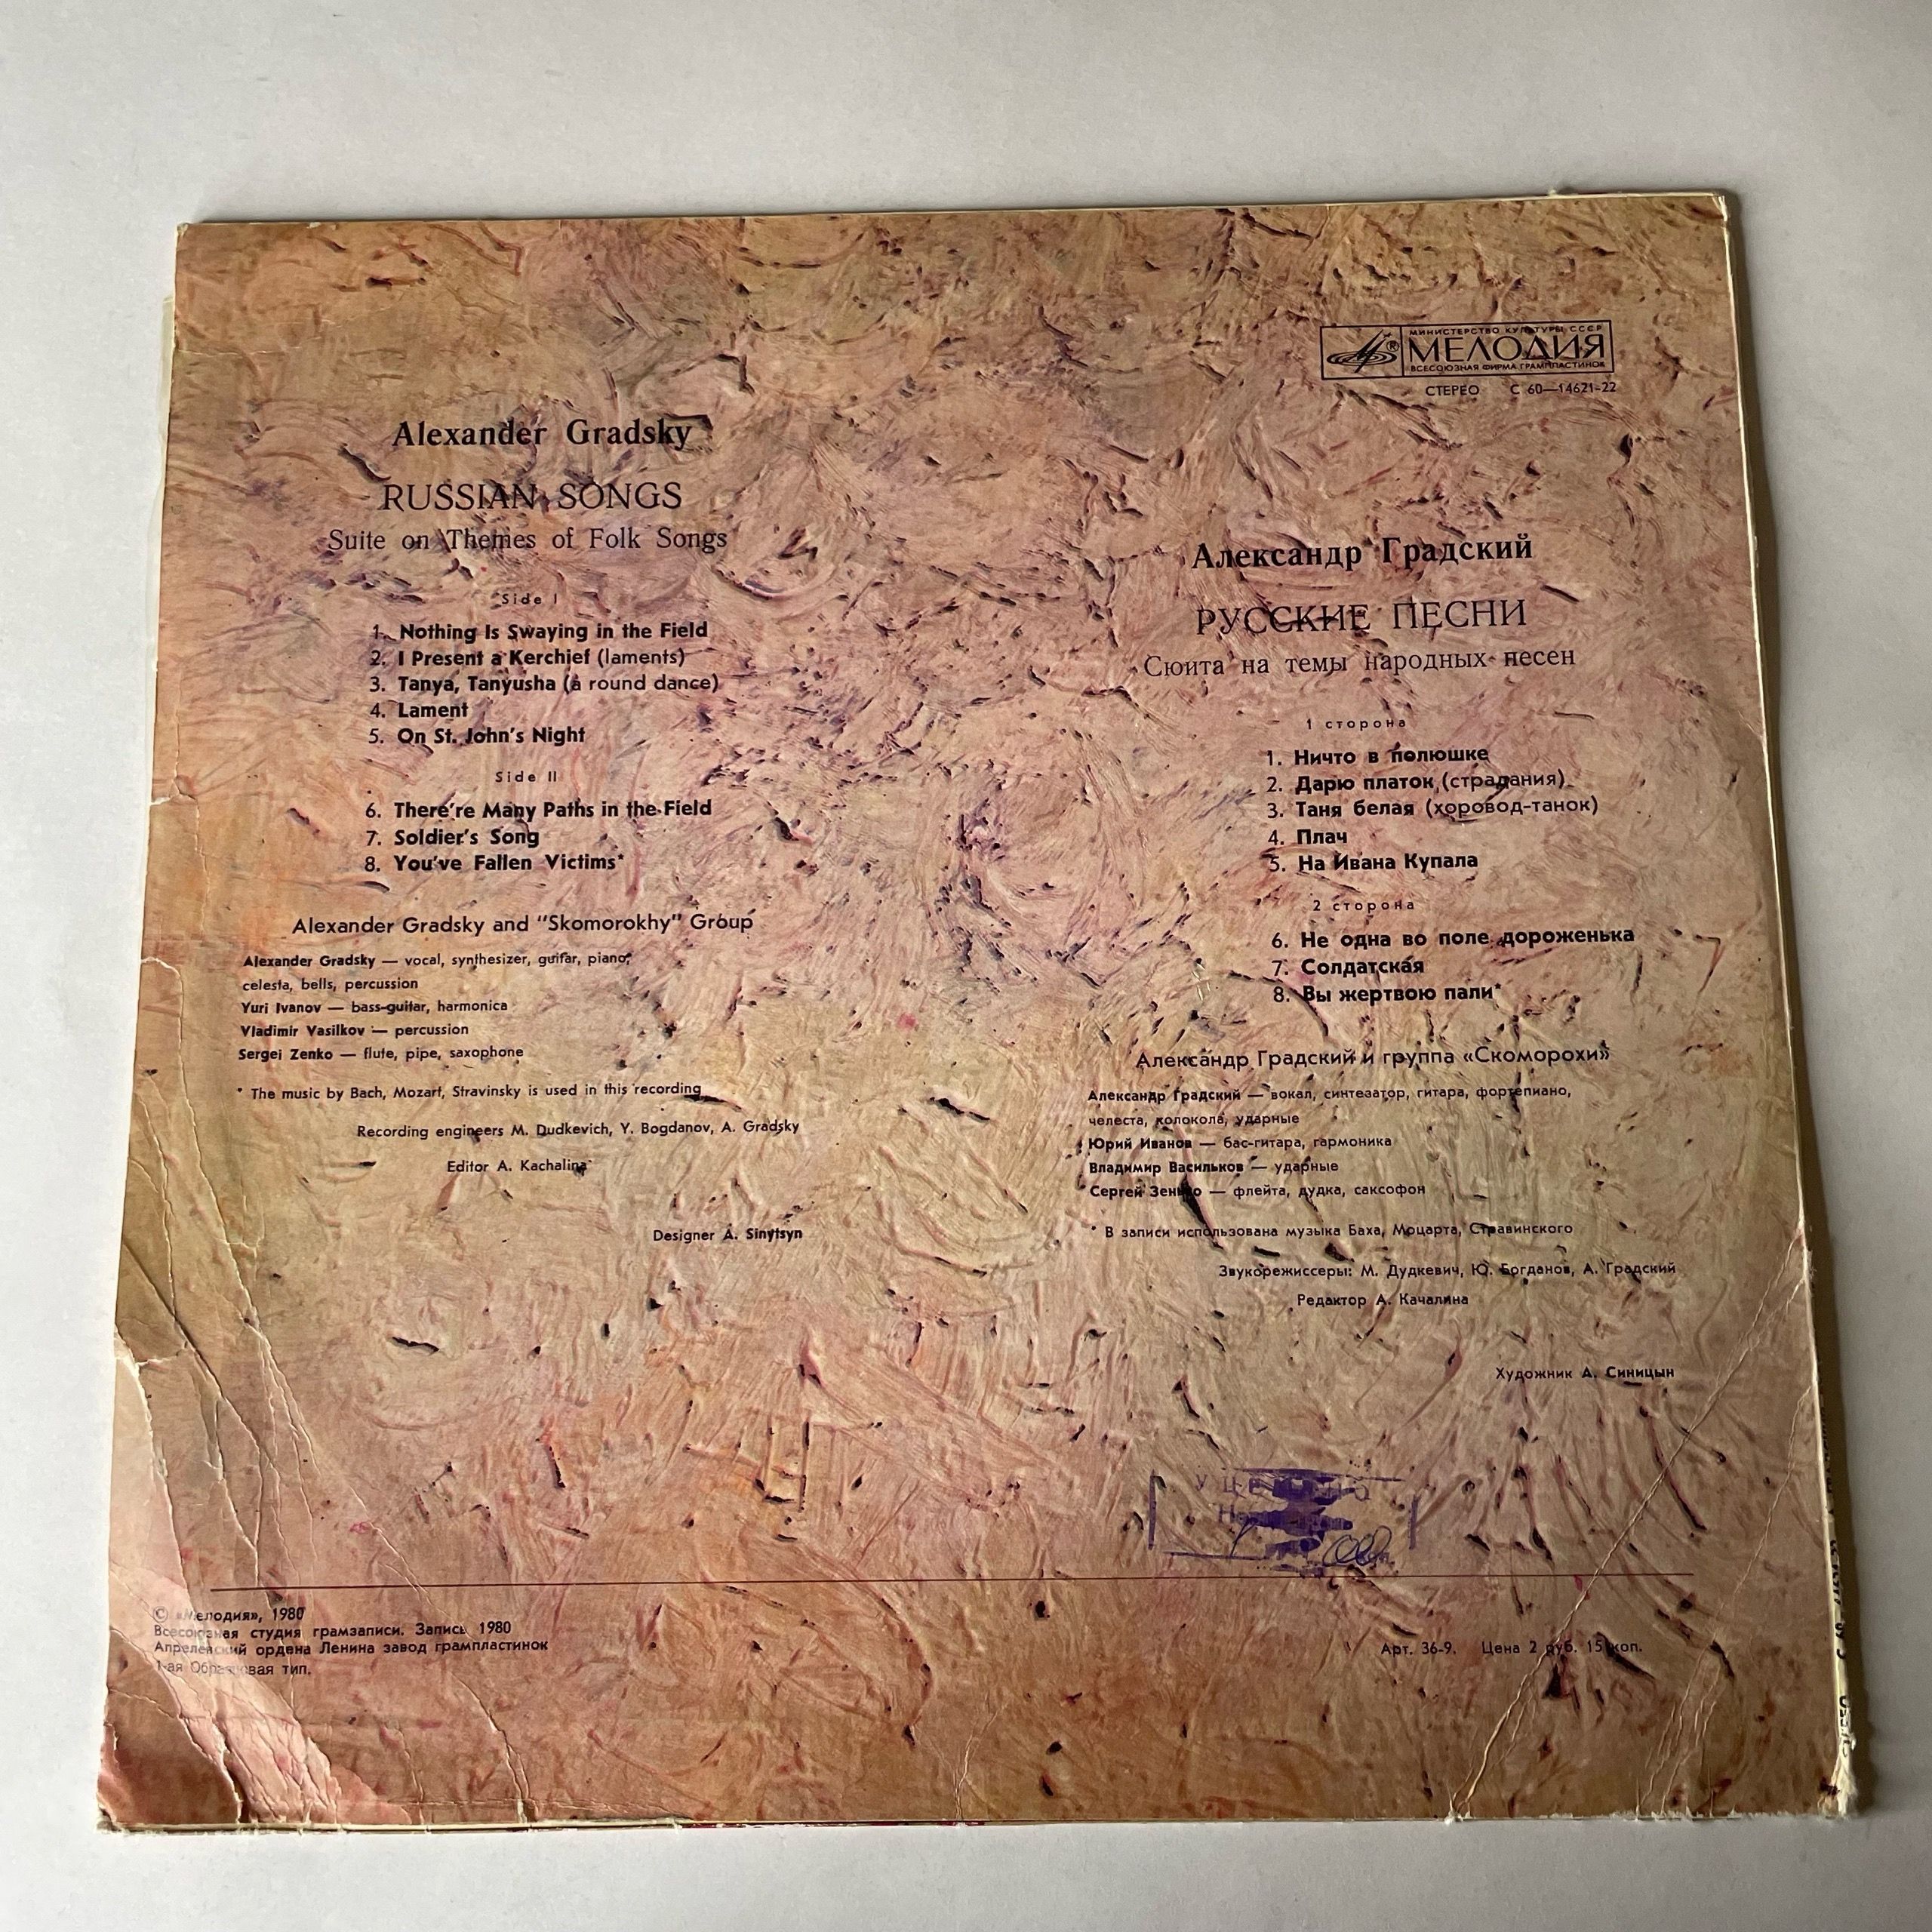 Alexander Gradsky
RUSSIAN SONGS
Suite on Themes of Folk Songs
Side I
1. Nothing Is Swaying in the Field
2. I Present a Kerchief (laments)
3. Tanya, Tanyusha (a round dance)
4. Lament
5. On St. John's Night
Side II
6. There're Many Paths in the Field
7. Soldier's Song
8. You've Fallen Victims*
Alexander Gradsky and "Skomorokhy" Group
Alexander Gradsky — vocal, synthesizer, guitar, piano,
celesta, bells, percussion
Yuri Ivanov — bass-guitar, harmonica
Vladimir Vasilkov — percussion
Sergei Zenko — flute, pipe, saxophone
* The music by Bach, Mozart, Stravinsky is used in this recording
Recording engineers M. Dudkevich, Y. Bogdanov, A. Gradsky
Editor A. Kachalina
Designer A. Sinytsyn
МИНИСТЕРСТВО КУЛЬТУРЫ СССР
МЕЛОДИЯ
ВСЕСОЮЗНАЯ ФИРМА ГРАМПЛАСТИНОК
СТЕРЕО С 60—14621-22
Александр Градский
РУССКИЕ ПЕСНИ
Сюита на темы народных песен
1 сторона
1. Ничто в полюшке
2. Дарю платок (страдания)
3. Таня белая (хоровод-танок)
4. Плач
5. На Ивана Купала
2 сторона
6. Не одна во поле дороженька
7. Солдатская
8. Вы жертвою пали*
Александр Градский и группа «Скоморохи»
Александр Градский — вокал, синтезатор, гитара, фортепиано,
челеста, колокола, ударные
Юрий Иванов — бас-гитара, гармоника
Владимир Васильков — ударные
Сергей Зенько — флейта, дудка, саксофон
* В записи использована музыка Баха, Моцарта, Стравинского
Звукорежиссеры: М. Дудкевич, Ю. Богданов, А. Градский
Редактор А. Качалина
Художник А. Синицын
© «Мелодия», 1980
Всесоюзная студия грамзаписи. Запись 1980
Апрелевский ордена Ленина завод грампластинок
1-ая Образцовая тип.
Арт. 36-9. Цена 2 руб. 15 коп.